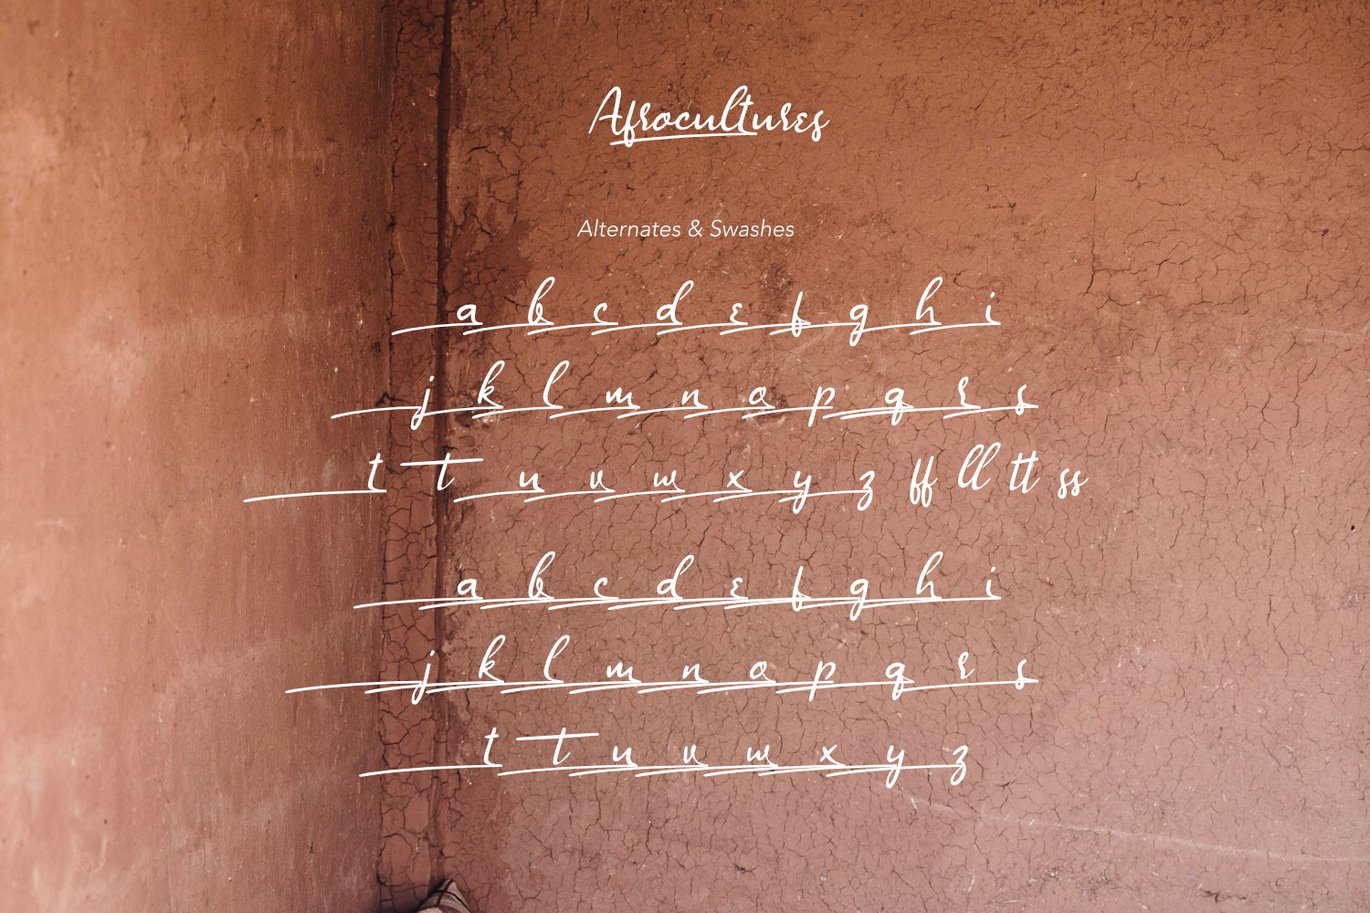 Afrocultures
Alternates & Swashes
a b c d e f g h i
j k l m n o p q r s
t t u v w x y z ff ll tt ss
a b c d e f g h i
j k l m n o p q r s
t t u v w x y z